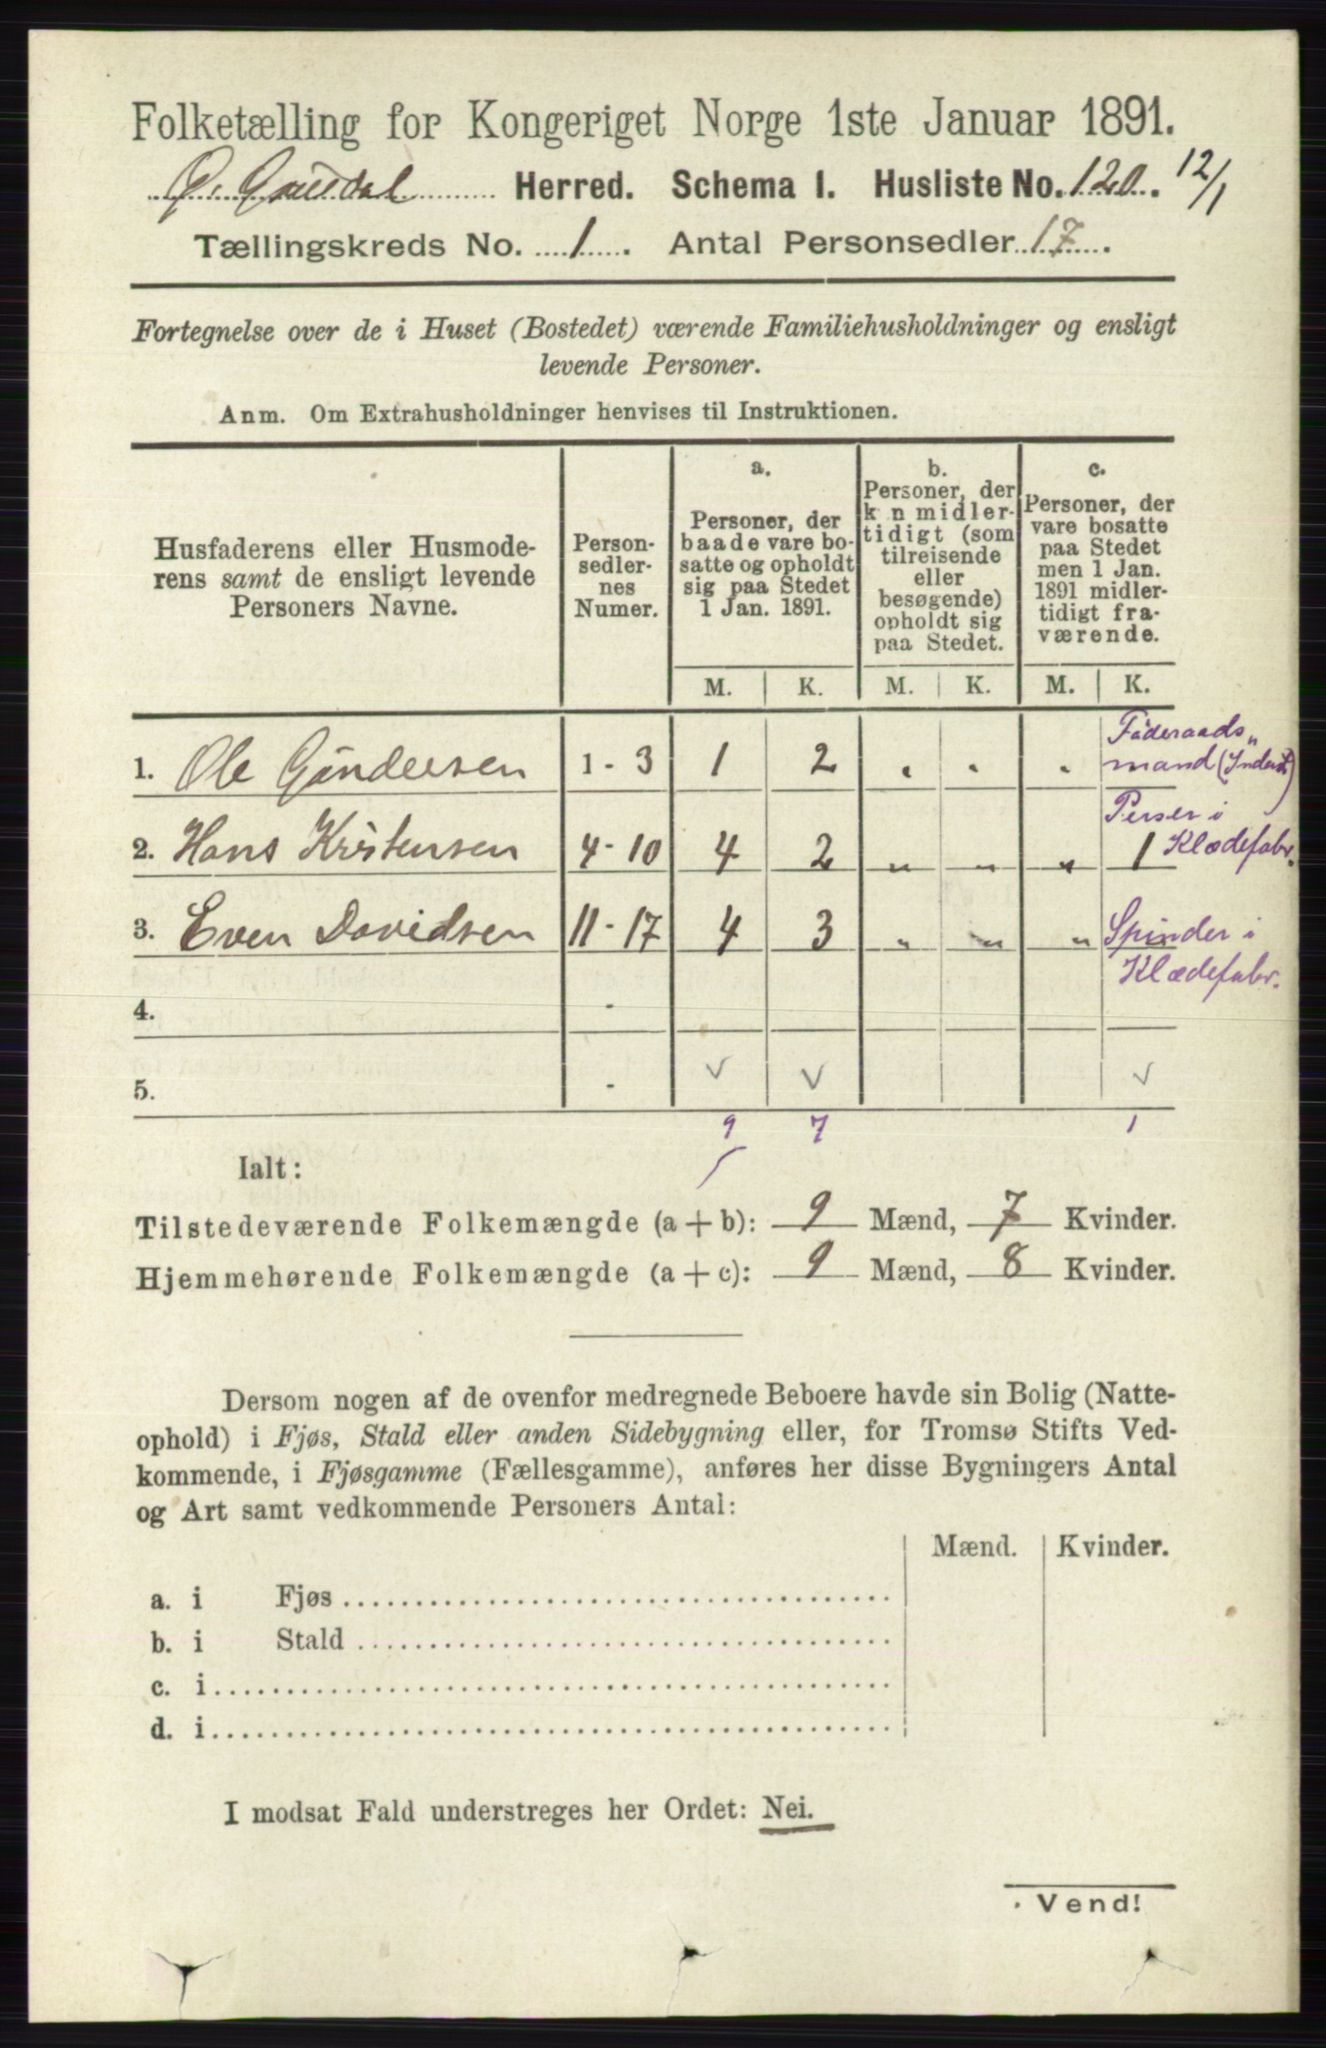 Folketælling for Kongeriget Norge 1ste Januar 1891.
Ø. Gausdal Herred. Schema 1. Husliste No. 120. 12/1
Tællingskreds No. 1. Antal Personsedler 17.
Fortegnelse over de i Huset (Bostedet) værende Familiehusholdninger og ensligt
levende Personer.
Anm. Om Extrahusholdninger henvises til Instruktionen.
Husfaderens eller Husmode-
rens samt de ensligt levende
Personers Navne.
Person-
sedler-
nes
Numer.
a.
Personer, der
baade vare bo-
satte og opholdt
sig paa Stedet
1 Jan. 1891.
b.
Personer, der
k n midler-
tidigt (som
tilreisende
eller
besøgende)
opholdt sig
paa Stedet.
c.
Personer, der
vare bosatte
paa Stedet
men 1 Jan.
1891 midler-
tidigt fra-
værende.
M. K. M. K. M. K.
Föderaads„
1. Ole Gundersen 1 - 3 1 2 „ „ „ mand (Inderst)
Perser i
2. Hans Kristensen 4 - 10 4 2 „ „ „ 1 Klædefabr.
3. Even Davidsen 11 - 17 4 3 „ „ „ Spinder i
Klædefabr.
4. -
5. -
9 7 1
Ialt:
Tilstedeværende Folkemængde (a + b): 9 Mænd, 7 Kvinder.
Hjemmehørende Folkemængde (a + c): 9 Mænd, 8 Kvinder.
Dersom nogen af de ovenfor medregnede Beboere havde sin Bolig (Natte-
ophold) i Fjøs, Stald eller anden Sidebygning eller, for Tromsø Stifts Ved-
kommende, i Fjøsgamme (Fællesgamme), anføres her disse Bygningers Antal
og Art samt vedkommende Personers Antal:
Mænd. Kvinder.
a. i Fjøs
b. i Stald
c. i
d. i
I modsat Fald understreges her Ordet: Nei.
Vend!